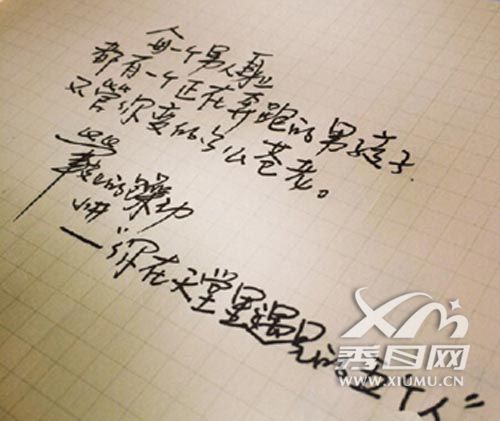 每一个男人身上
都有一个正在奔跑的男孩子
不管你变得多么苍老。
的躁动
——“你在天堂里遇见的五个人”
秀目网
WWW.XIUMU.CN